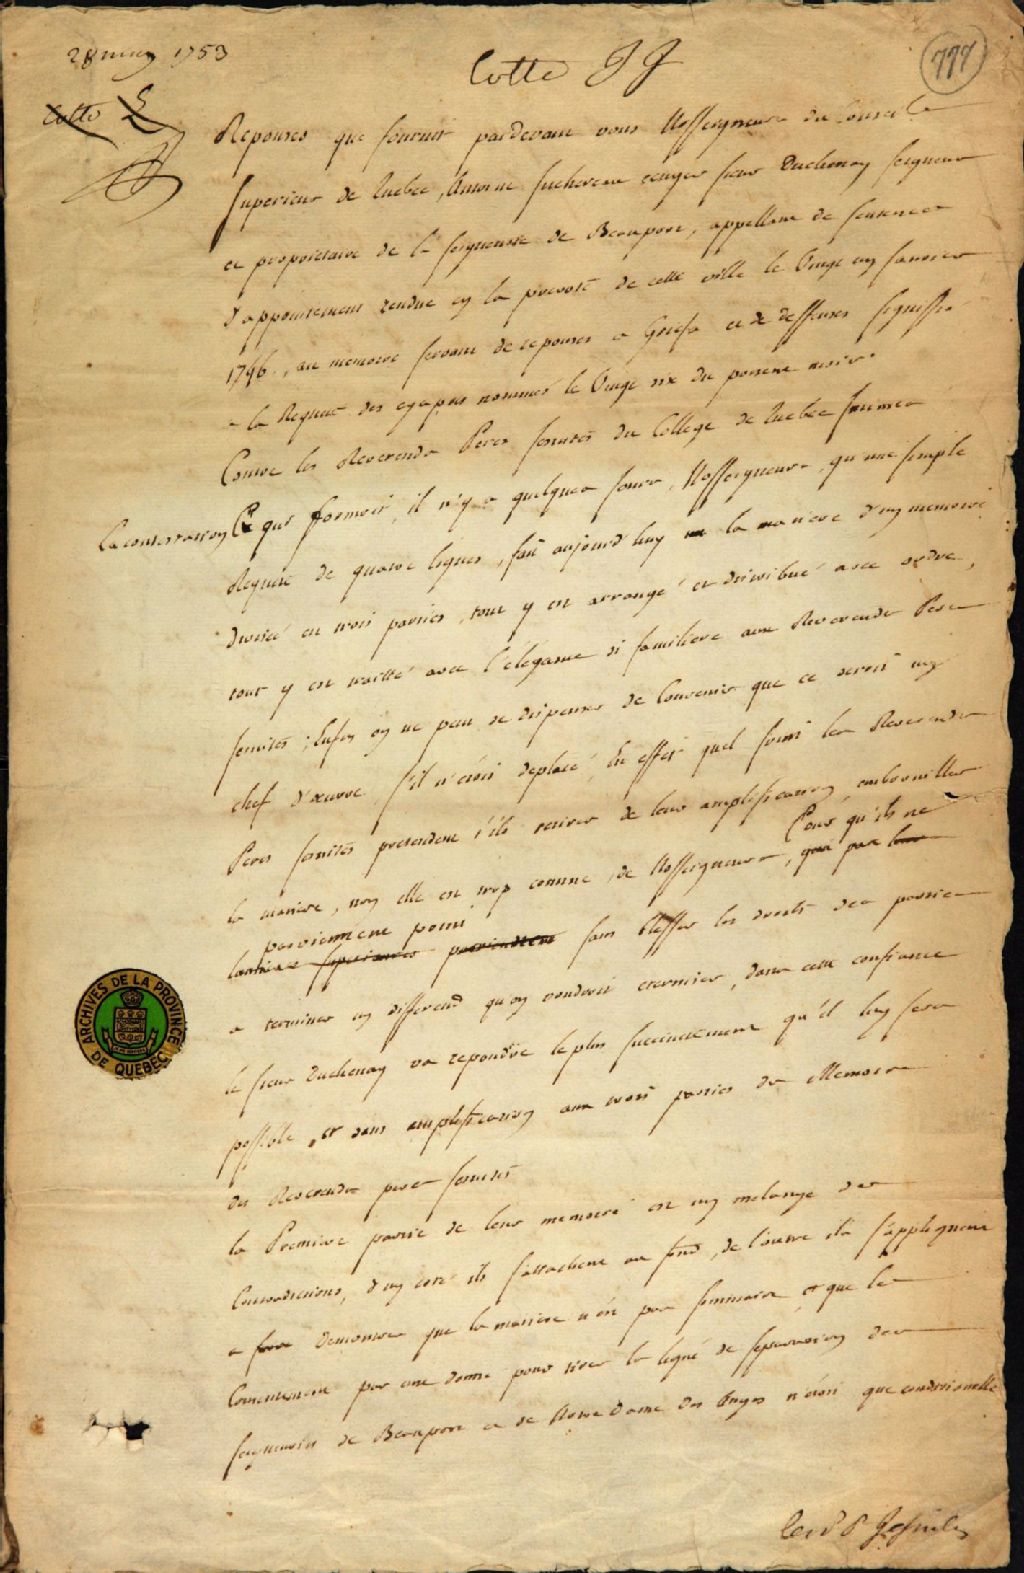 28 may 1753
Cotte JJ
777
Cotte
Reponses que fournit pardevant vous Nosseigneurs du Conseil
Superieur de Quebec, Antoine Juchereau ecuyer sieur Duchesnay seigneur
et proprietaire de la seigneurie de Beauport, appellant de sentence
d'appointement rendue en la prevosté de cette ville le Vingt un Janvier
1746., au memoire servant de reponses a Griefs et de deffenses signiffié
a la Requete des cyapres nommés le Vingt six du present mois.
Contre les Reverends Peres Jesuites du College de Quebec Intimés
la contestation
Ce qui formoit, il n'y a quelques jours, Nosseigneurs, qu'une simple
Requete de quatre lignes, fait aujourd'huy la matiere d'un memoire
divisé en trois parties, tout y est arrangé et distribué avec ordre,
tout y est traitté avec l'élégance si familiere aux Reverends Peres
Jesuites; Enfin on ne peut se dispenser de Convenir que ce seroit un
chef d'œuvre s'il n'étoit deplacé, En effet quel fruit les Reverends
Peres Jesuites pretendent t'ils retirer de leur amplification, embrouiller
la matiere, non elle est trop connue de Nosseigneurs, pour qu'ils ne
parviennent point
sans blesser les droits des parties
a terminer un differend qu'on voudroit eterniser, dans cette confiance
le sieur Duchesnay va repondre le plus succinctement qu'il luy sera
possible, et sans amplification aux trois parties du Memoire
des Reverends peres Jesuites
la Premiere partie de leur memoire est un melange de
Contradictions, d'un coté ils s'attachent au fond, de l'autre ils s'appliquent
a demontrer que la matiere n'est pas sommaire et que le
Consentement par eux donné pour tirer la ligne de separation des
seigneuries de Beauport et de Notre Dame des Anges n'étoit que conditionelle
Les PP Jesuites
ARCHIVES DE LA PROVINCE DE QUEBEC